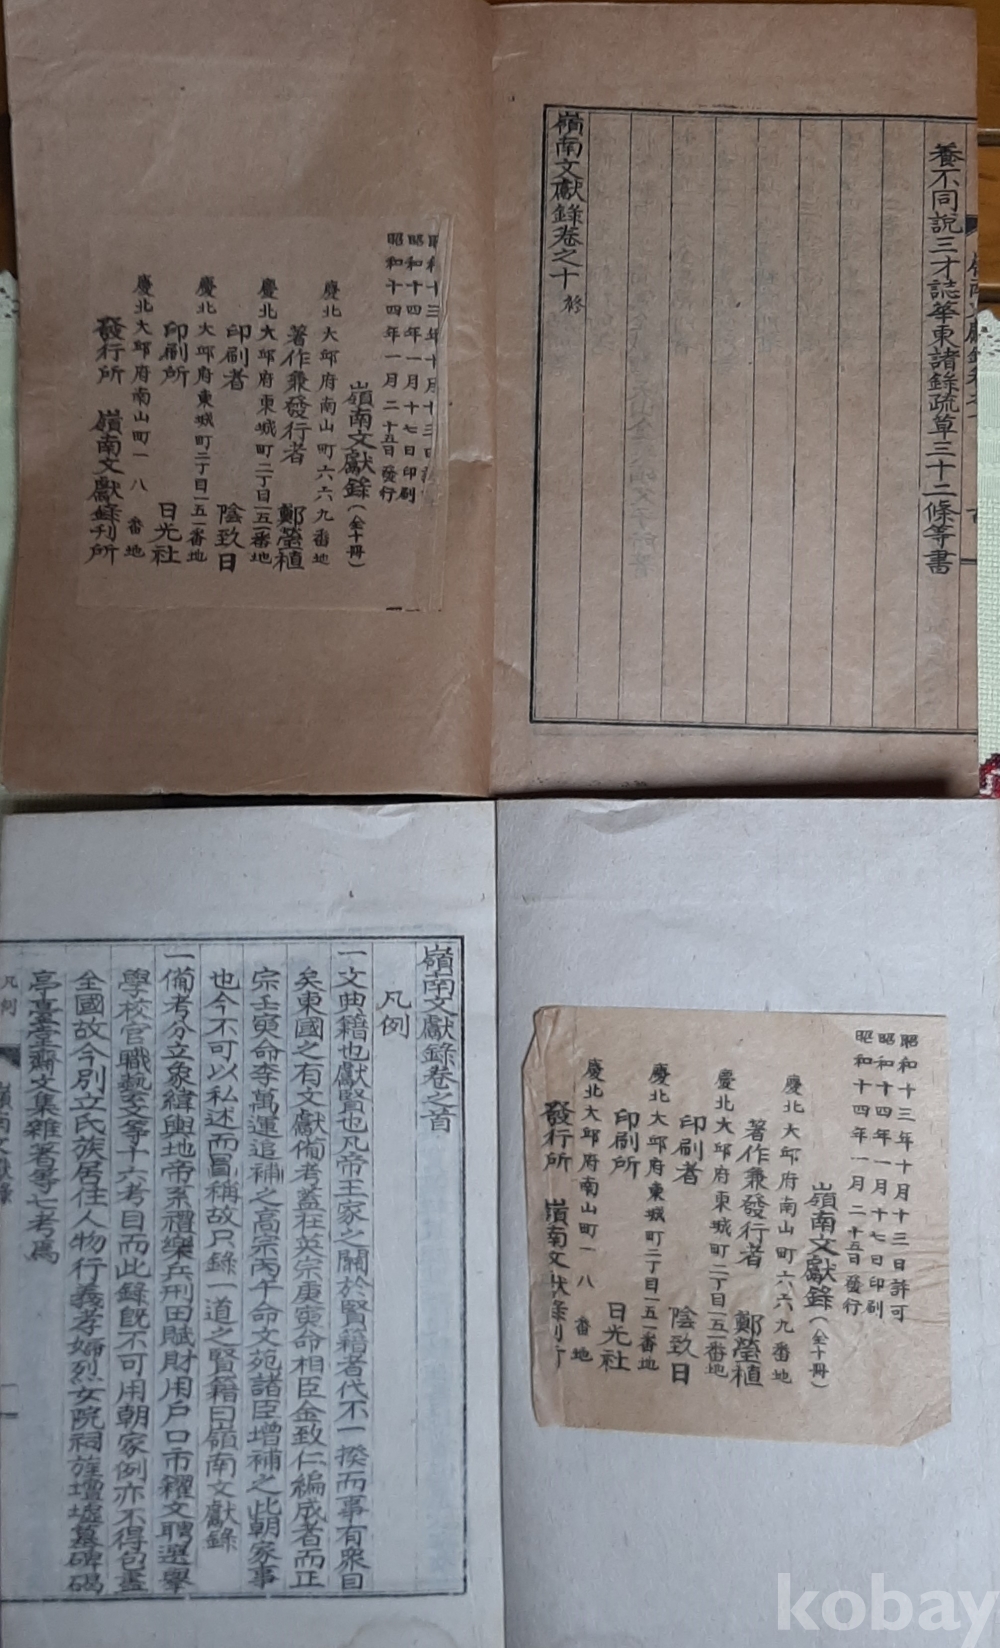 養不同說三才誌華東諸錄疏草三十二條等書
嶺南文獻錄卷之十 終
昭和十四年一月十七日印刷
昭和十四年一月二十五日發行
嶺南文獻錄（全十冊）
慶北大邱府南山町六六九番地
著作兼發行者 鄭瑩植
慶北大邱府東城町二丁目一五一番地
印刷者 陰致日
慶北大邱府東城町二丁目一五一番地
印刷所 日光社
慶北大邱府南山町一八 番地
發行所 嶺南文獻錄刊所
嶺南文獻錄卷之首
凡例
一文典籍也獻賢也凡帝王家之關於賢籍者代不一揆而事有衆目
矣東國之有文獻備考蓋在英宗庚寅命相臣金致仁編成者而正
宗壬寅命李萬運追補之高宗丙午命文苑諸臣增補之此朝家事
也今不可以私述而冒稱故只錄一道之賢籍曰嶺南文獻錄
一備考分立象緯輿地帝系禮樂兵刑田賦財用戶口市糴文聘選擧
學校官職藝文等十六考目而此錄旣不可用朝家例亦不得包盡
全國故今別立氏族居住人物行義孝婦烈女院祠旌壇墟墓碑碣
亭臺堂齋文集雜著等七考爲
凡例
昭和十三年十月十三日許可
昭和十四年一月十七日印刷
昭和十四年一月二十五日發行
嶺南文獻錄（全十冊）
慶北大邱府南山町六六九番地
著作兼發行者 鄭瑩植
慶北大邱府東城町二丁目一五一番地
印刷者 陰致日
慶北大邱府東城町二丁目一五一番地
印刷所 日光社
慶北大邱府南山町一八 番地
發行所 嶺南文獻錄刊所
kobay